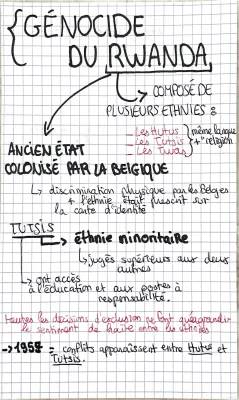 GÉNOCIDE
DU RWANDA
COMPOSÉ DE
PLUSIEURS ETHNIES :
– Les Hutus
– Les Tutsis
– Les Twas
même langue
+ religion
ANCIEN ÉTAT
COLONISÉ PAR LA BELGIQUE
↳ discrimination physique par les Belges
+ l'ethnie était prescrit sur
la carte d'identité
TUTSIS
↳ éthnie minoritaire
↳ jugés supérieurs aux deux
autres
↳ ont accès
à l'éducation et aux postes à
responsabilité.
toutes les décisions d'exclusion ne font qu'agrandir
le sentiment de haine entre les ethnies
→ 1959 = conflits apparaissent entre Hutus et
Tutsis.